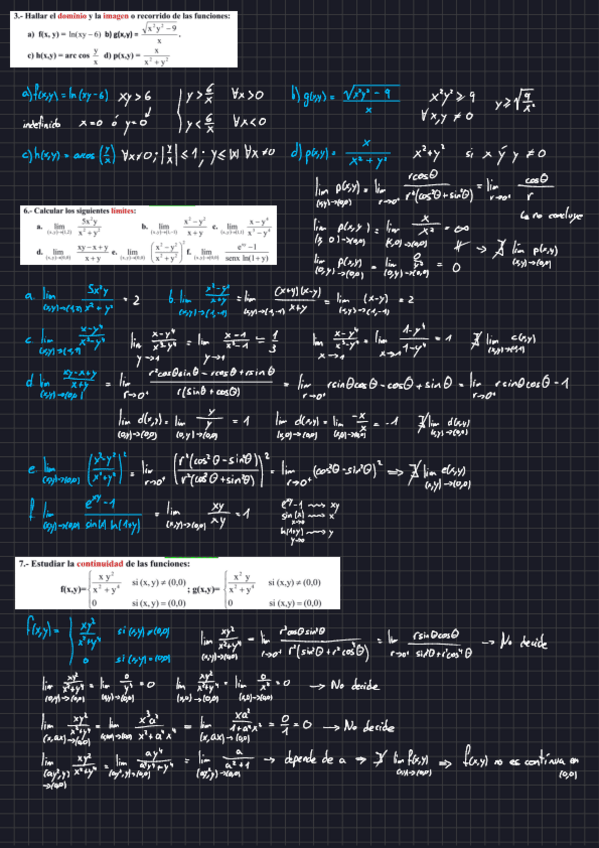 3.- Hallar el dominio y la imagen o recorrido de las funciones:
a) f(x, y) = ln(xy−6) b) g(x,y) = √(x²y²−9)/x .
c) h(x,y) = arc cos y/x d) p(x,y) = x/(x²+y²)
a) f(x,y) = ln(xy-6) xy>6 { y > 6/x ∀x>0
indefinido x=0 ó y=0 y < 6/x ∀x<0
b) g(x,y) = √(x²y²-9)/x x²y² ≥ 9 y ≥ √(9/x²)
∀x,y ≠ 0
c) h(x,y) = arcos (y/x) ∀x≠0; |y/x| ≤ 1; y ≤ |x| ∀x≠0
d) p(x,y) = x/(x²+y²) x²+y² si x ó y ≠ 0
lim (x,y)→(0,0) p(x,y) = lim r→0⁺ rcosθ/(r²(cos²θ+sin²θ)) = lim r→0⁺ cosθ/r
↳ no concluye
lim (x,0)→(0,0) p(x,y) = lim (x,0)→(0,0) x/x² = ∞
≠ → ∄ lim (x,y)→(0,0) p(x,y)
lim (0,y)→(0,0) p(x,y) = lim (0,y)→(0,0) 0/y² = 0
6.- Calcular los siguientes límites:
a. lim (x,y)→(1,2) 5x²y/(x²+y²) b. lim (x²−y²)/(x+y) c. lim (x,y)→(1,1) (x−y⁴)/(x³−y⁴)
d. lim (x,y)→(0,0) (xy−x+y)/(x+y) e. lim (x,y)→(0,0) ((x²−y²)/(x²+y²))² f. lim (x,y)→(0,0) (e^xy −1)/(senx ln(1+y))
a. lim (x,y)→(1,2) 5x²y/(x²+y²) = 2 b. lim (x,y)→(1,-1) (x²-y²)/(x+y) = lim (x,y)→(1,-1) (x+y)(x-y)/(x+y) = lim (x,y)→(1,-1) (x-y) = 2
c. lim (x,y)→(1,1) (x-y⁴)/(x³-y⁴) lim y→1 (x-y⁴)/(x³-y⁴) = lim y→1 (x-1)/(x³-1) = 1/3 lim x→1 (x-y⁴)/(x³-y⁴) = lim x→1 (1-y⁴)/(1-y⁴) = 1 ∄ lim (x,y)→(1,1) c(x,y)
d. lim (x,y)→(0,0) (xy-x+y)/(x+y) = lim r→0⁺ (r²cosθsinθ - rcosθ + rsinθ)/(r(sinθ+cosθ)) = lim r→0⁺ rsinθcosθ-cosθ+sinθ = lim r→0⁺ rsinθcosθ-1
lim (0,y)→(0,0) d(x,y) = lim (0,y)→(0,0) y/y = 1 lim (x,0)→(0,0) d(x,y) = lim (x,0)→(0,0) -x/x = -1 ∄ lim (x,y)→(0,0) d(x,y)
e. lim (x,y)→(0,0) ((x²-y²)/(x²+y²))² = lim r→0⁺ (r²(cos²θ-sin²θ)/(r²(cos²θ+sin²θ)))² = lim r→0⁺ (cos²θ-sin²θ)² ⟹ ∄ lim (x,y)→(0,0) e(x,y)
f. lim (x,y)→(0,0) (e^xy -1)/(sin(x) ln(1+y)) = lim (x,y)→(0,0) xy/xy = 1 e^xy -1 ⇝ xy
sin(x) x→0 ⇝ x
ln(1+y) y→0 ⇝ y
7.- Estudiar la continuidad de las funciones:
f(x,y)= { xy²/(x²+y⁴) si (x,y) ≠ (0,0) ; g(x,y)= { x²y/(x²+y⁴) si (x,y) ≠ (0,0)
0 si (x,y) = (0,0) 0 si (x,y) = (0,0)
f(x,y) = { xy²/(x²+y⁴) si (x,y) ≠ (0,0) lim (x,y)→(0,0) xy²/(x²+y⁴) = lim r→0⁺ r³cosθsin²θ/(r²(sin²θ+r²cos⁴θ)) = lim r→0⁺ rsinθcosθ/(sin²θ+r²cos⁴θ) → No decide
0 si (x,y) = (0,0)
lim (0,y)→(0,0) xy²/(x²+y⁴) = lim (0,y)→(0,0) 0/y⁴ = 0 lim (x,0)→(0,0) xy²/(x²+y⁴) = lim (x,0)→(0,0) 0/x² = 0 → No decide
lim (x,ax)→(0,0) xy²/(x²+y⁴) = lim (x,ax)→(0,0) x³a²/(x²+a⁴x⁴) = lim (x,ax)→(0,0) xa²/(1+a⁴x²) = 0/1 = 0 → No decide
lim (ay²,y)→(0,0) xy²/(x²+y⁴) = lim (ay²,y)→(0,0) ay⁴/(a²y⁴+y⁴) = lim (ay²,y)→(0,0) a/(a²+1) → depende de a → ∄ lim (x,y)→(0,0) f(x,y) ⟹ f(x,y) no es continua en (0,0)